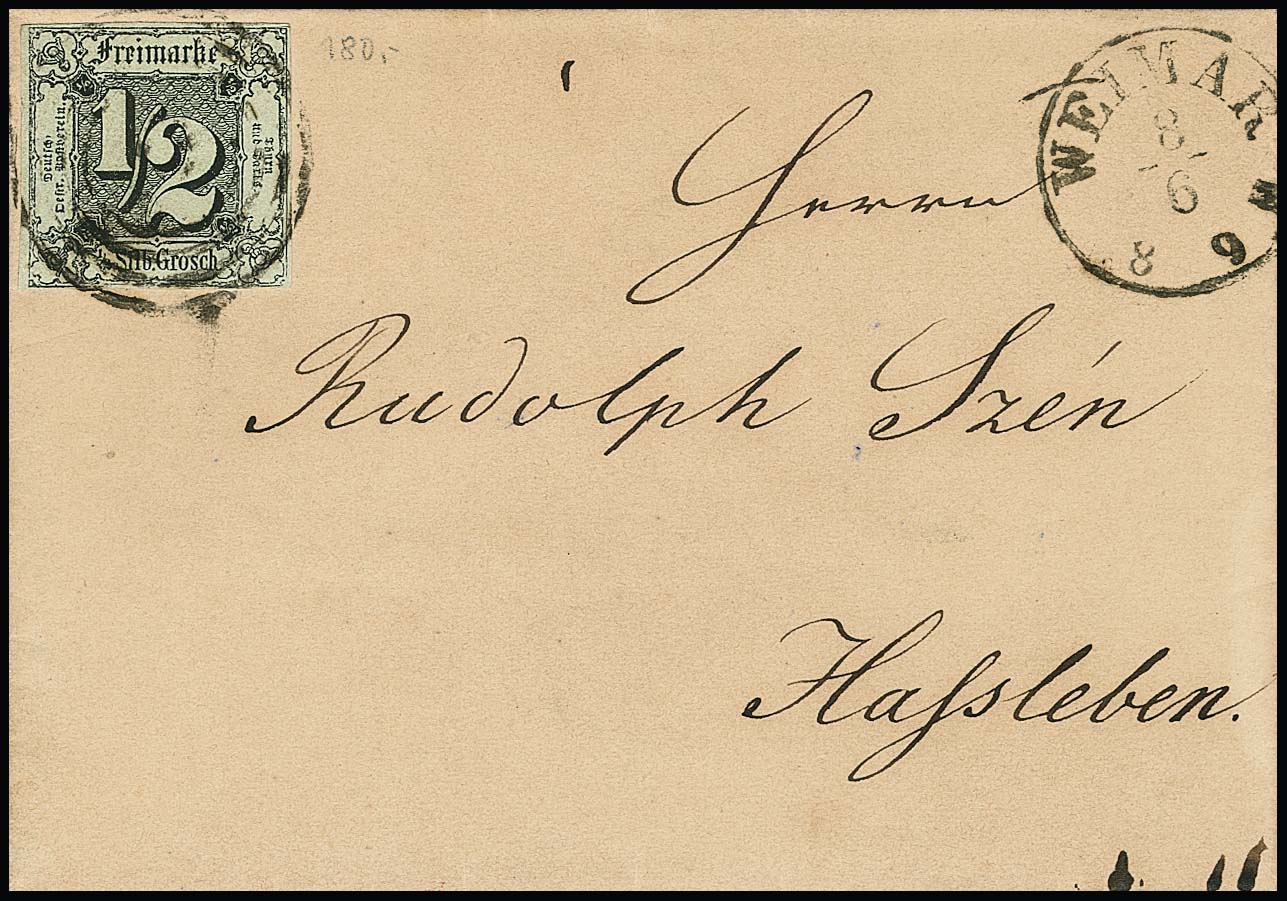 Freimarke
Deutsch-
Oestr. Postverein.
1/2
Thurn
und Taxis
1/2 Silb.Grosch
180,-
WEIMAR
8/6
8 9
Herrn
Rudolph Szén
Hassleben.